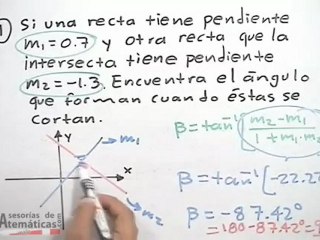 1) Si una recta tiene pendiente
m₁=0.7 y otra recta que la
intersecta tiene pendiente
m₂=-1.3. Encuentra el ángulo
que forman cuando éstas se
cortan.
β=tan⁻¹[m₂-m₁
1+m₁·m₂
β=tan⁻¹[-22.22
β=-87.42°
=180-87.42°=9
y
m₁
x
m₂
Asesorías de
Matemáticas.com